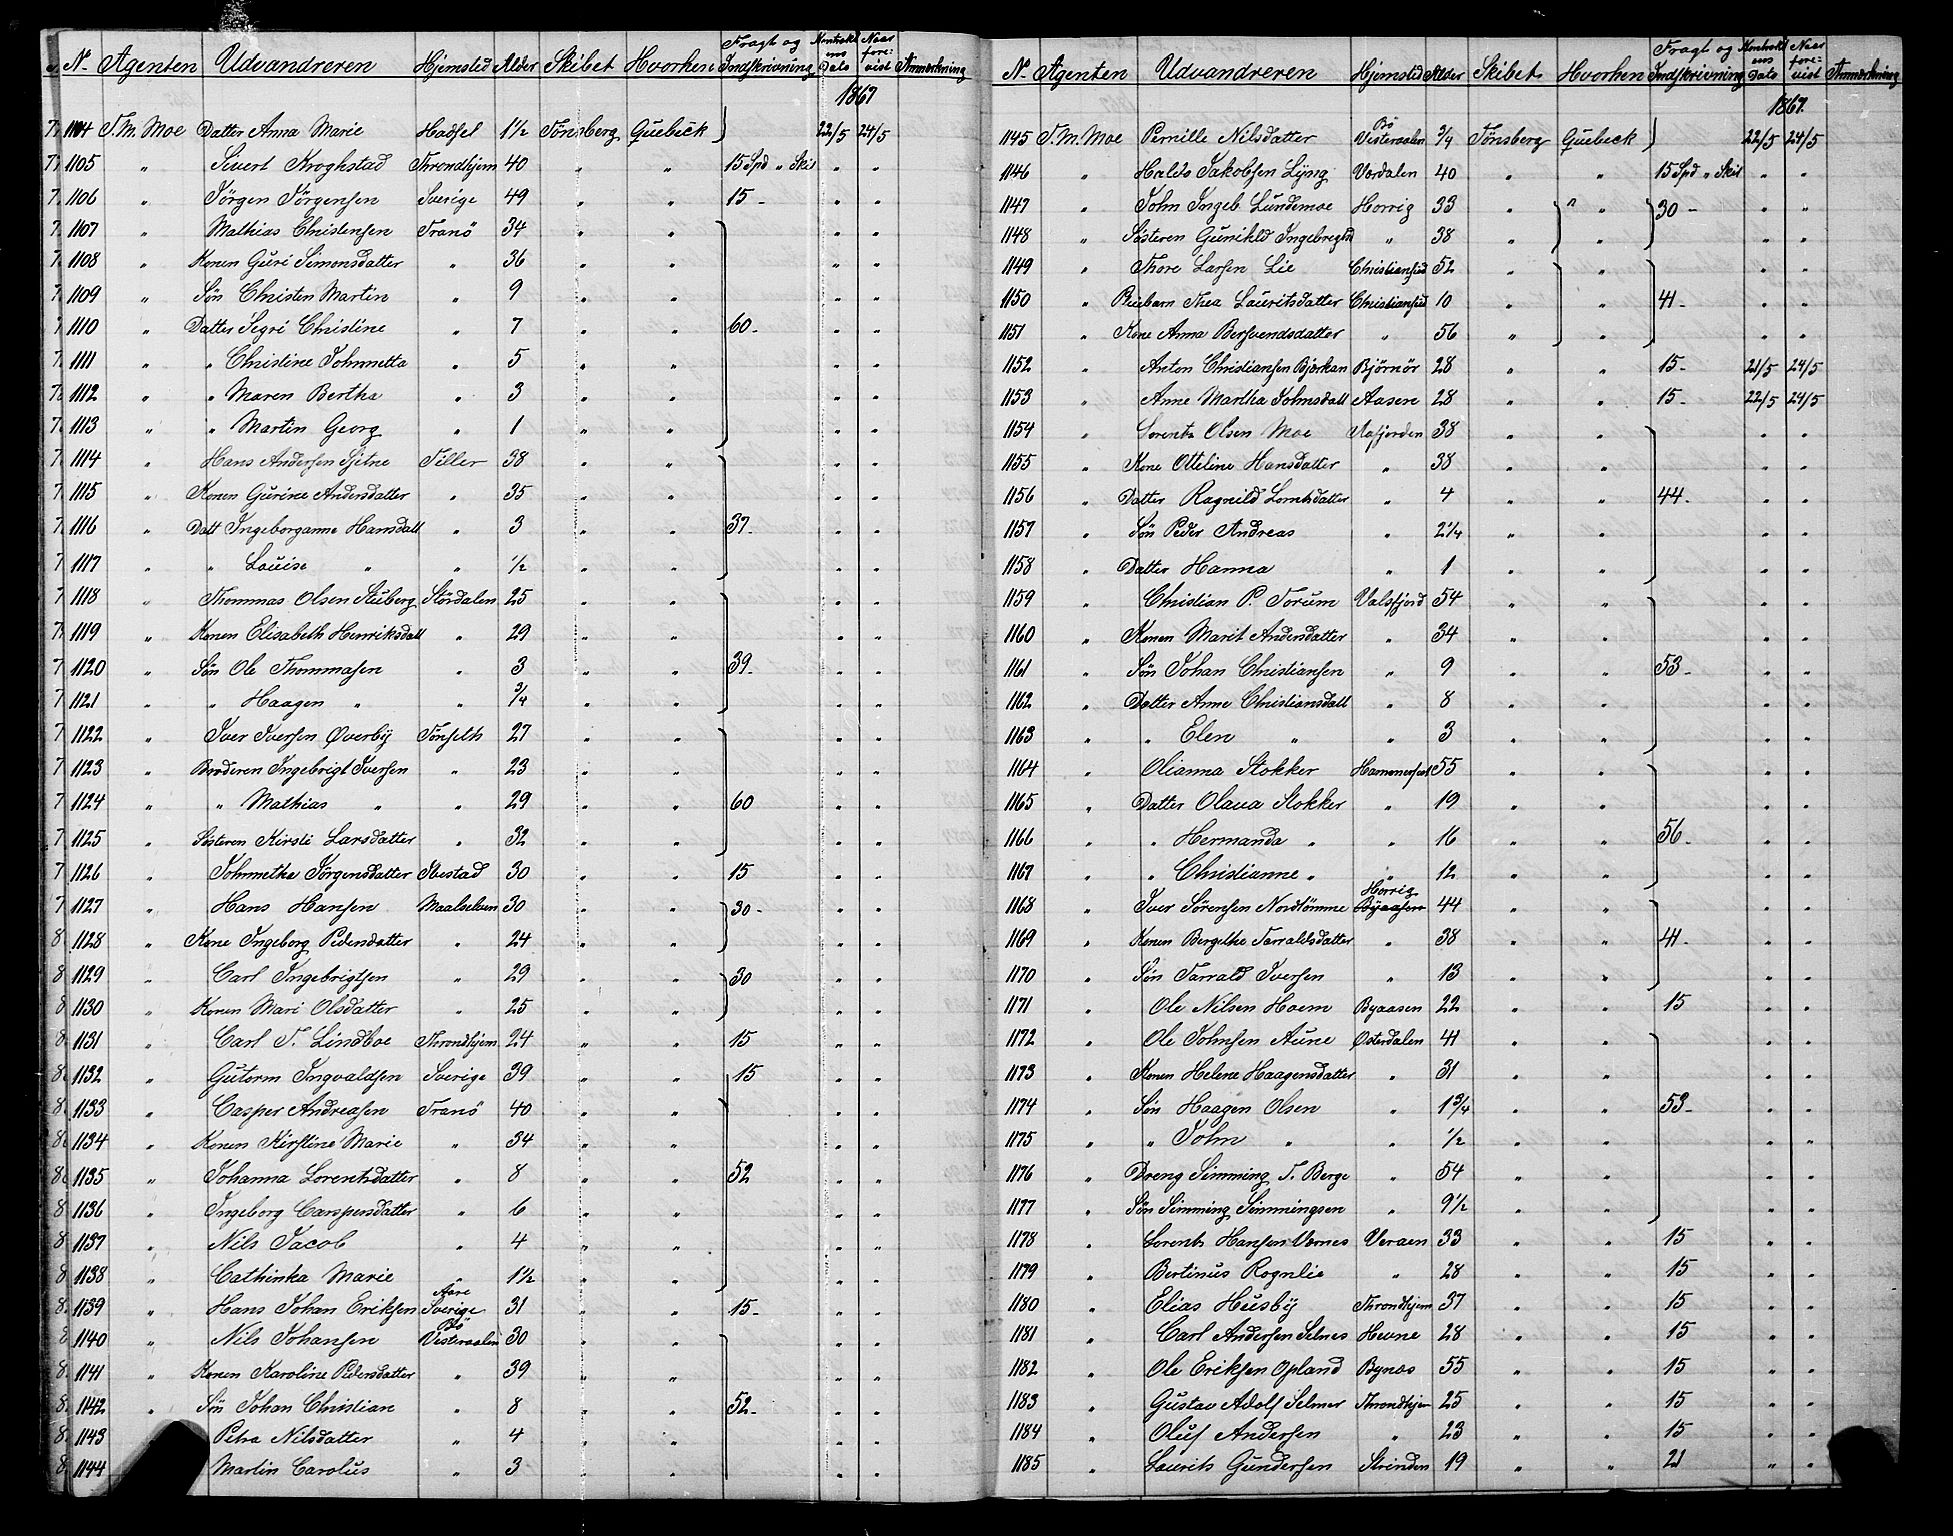 N- Agenten Udvandreren Hjemsted Alder Skibet Hvorhen Fragt og Indskrivning Kontrakt ens Dato Naar fore- vist Anmærkning
1867
1104 T. M. Moe Datter Anna Marie Hadsel 1½ Tønsberg Quebeck 22/5 24/5
1105 " Sivert Kroghstad Throndhjem 40 " " 15 Spd " Skil " "
1106 " Jörgen Jörgensen Sverige 49 " " 15 - " "
1107 " Mathias Christensen Tranö 34 " " " "
1108 " Konen Guri Simonsdatter " 36 " " " "
1109 " Søn Christen Martin " 9 " " " "
1110 " Datter Segri Christine " 7 " " 60- " "
1111 " " Christine Johnnetta " 5 " " " "
1112 " " Maren Bertha " 3 " " " "
1113 " " Martin Georg " 1 " " " "
1114 " Hans Andersen Sjetne Tiller 38 " " " "
1115 " Konen Gurine Andersdatter " 35 " " " "
1116 " Datt Ingeborganne Hansdatt " 3 " " 37- " "
1117 " " Louise " " ½ " " " "
1118 " Thommas Olsen Stuberg Stördalen 25 " " " "
1119 " Konen Elisabeth Henriksdatt " 29 " " " "
1120 " Søn Ole Thommasen " 3 " " 39- " "
1121 " " Haagen " " ¾ " " " "
1122 " Iver Iversen Øverby Tønseth 27 " " " "
1123 " Broderen Ingebrigt Iversen " 23 " " " "
1124 " " Mathias " " 29 " " 60 " "
1125 " Søsteren Kirsti Larsdatter " 32 " " " "
1126 " Johnnetha Jörgensdatter Ibestad 30 " " 15 " "
1127 " Hans Hansen Maalselven 30 " " 30- " "
1128 " Kone Ingeborg Pedersdatter " 24 " " " "
1129 " Carl Ingebrigtsen " 29 " " 30 " "
1130 " Konen Mari Olsdatter " 25 " " " "
1131 " Carl T. Lindboe Throndhjem 24 " " 15 " "
1132 " Gutorm Ingvaldsen Sverige 39 " " 15 " "
1133 " Casper Andreasen Tranö 40 " " " "
1134 " Konen Kirstine Marie " 34 " " " "
1135 " Johanna Lorentsdatter " 8 " " 52 " "
1136 " Ingeborg Caspersdatter " 6 " " " "
1137 " Nils Jacob " 4 " " " "
1138 " Cathinka Marie " 1½ " " " "
1139 " Hans Johan Eriksen Aare Sverige 31 " " 15- " "
1140 " Nils Johansen Bö Vesteraalen 30 " " " "
1141 " Konen Karoline Pedersdatter " 39 " " " "
1142 " Søn Johan Christian " 8 " " 52- " "
1143 Petra Nilsdatter " 4 " " " "
1144 Martin Carolus " 3 " " " "
N- Agenten Udvandreren Hjemsted Alder Skibet Hvorhen Fragt og Indskrivning Kontrakt ens Dato Naar fore- vist Anmærkning
1867.
1145 T. M. Moe Pernille Nilsdatter Bö Vesteraalen ¾ Tönsberg Quebeck 22/5 24/5
1146 " Haldo Jakobsen Lyng Værdalen 40 " " 15 Spd " Skil " "
1147 " John Ingeb. Lundemoe Horrig 33 " " 30 - " "
1148 " Søsteren Gunild Ingebregtsd " 38 " " " "
1149 " Thore Larsen Lie Christiansud 52 " " " "
1150 " Pleiebarn Thea Lauritsdatter Christiansud 10 " " 41- " "
1151 " Kone Anna Bersvendsdatter " 56 " " " "
1152 " Anton Christiansen Bjørkan Björnör 28 " " 15- 21/5 24/5
1153 " Anne Martha Johnsdatt Aasen 28 " " 15- 22/5 24/5
1154 " Lorents Olsen Moe Aafjorden 38 " " " "
1155 " Kone Otteline Hansdatter " 38 " " " "
1156 " Datter Ragnild Lorntsdatter " 4 " " 44- " "
1157 " Søn Peder Andreas " 2¼ " " " "
1158 " Datter Hanna " 1 " " " "
1159 " Christian P. Forum Valsfjord 54 " " " "
1160 " Konen Marit Andersdatter " 34 " " " "
1161 " Søn Johan Christiansen " 9 " " 53- " "
1162 " Datter Anne Christiansdatt " 8 " " " "
1163 " " Elen " " 3 " " " "
1164 " Olianna Stokker Hammerfest 55 " " " "
1165 " Datter Olava Stokker " 19 " " " "
1166 " " Hermanda " " 16 " " 56- " "
1167 " " Christianne " " 12 " " " "
1168 " Iver Sørensen Nordtømme Horrig Byaasen 44 " " " "
1169 " Konen Bergithe Tarraldsdatter " 38 " " 41- " "
1170 " Søn Tarrald Iversen " 13 " " " "
1171 " Ole Nilsen Hoem Byaasen 22 " " 15 " "
1172 " Ole Johnsen Aune Østerdalen 41 " " " "
1173 " Konen Helene Haagensdatter " 31 " " " "
1174 " Søn Haagen Olsen " 1¾ " " 53- " "
1175 " " John " " ½ " " " "
1176 " Dreng Simming T. Berge " 54 " " " "
1177 " Søn Simming Simmingsen " 9½ " " " "
1178 " Lorents Hansen Værnes Veraen 33 " " 15 " "
1179 " Bertinus Rognlie " 28 " " 15 " "
1180 " Elias Husby Throndhjem 37 " " 15 " "
1181 " Carl Andersen Selnes Hevne 28 " " 15 " "
1182 " Ole Eriksen Opland Bynæs 55 " " 15 " "
1183 " Gustav Adolf Selmer Throndhjem 25 " " 15 " "
1184 " Oluf Andersen " 23 " " 15 " "
1185 " Laurits Gundersen Strinden 19 " " 21 " "